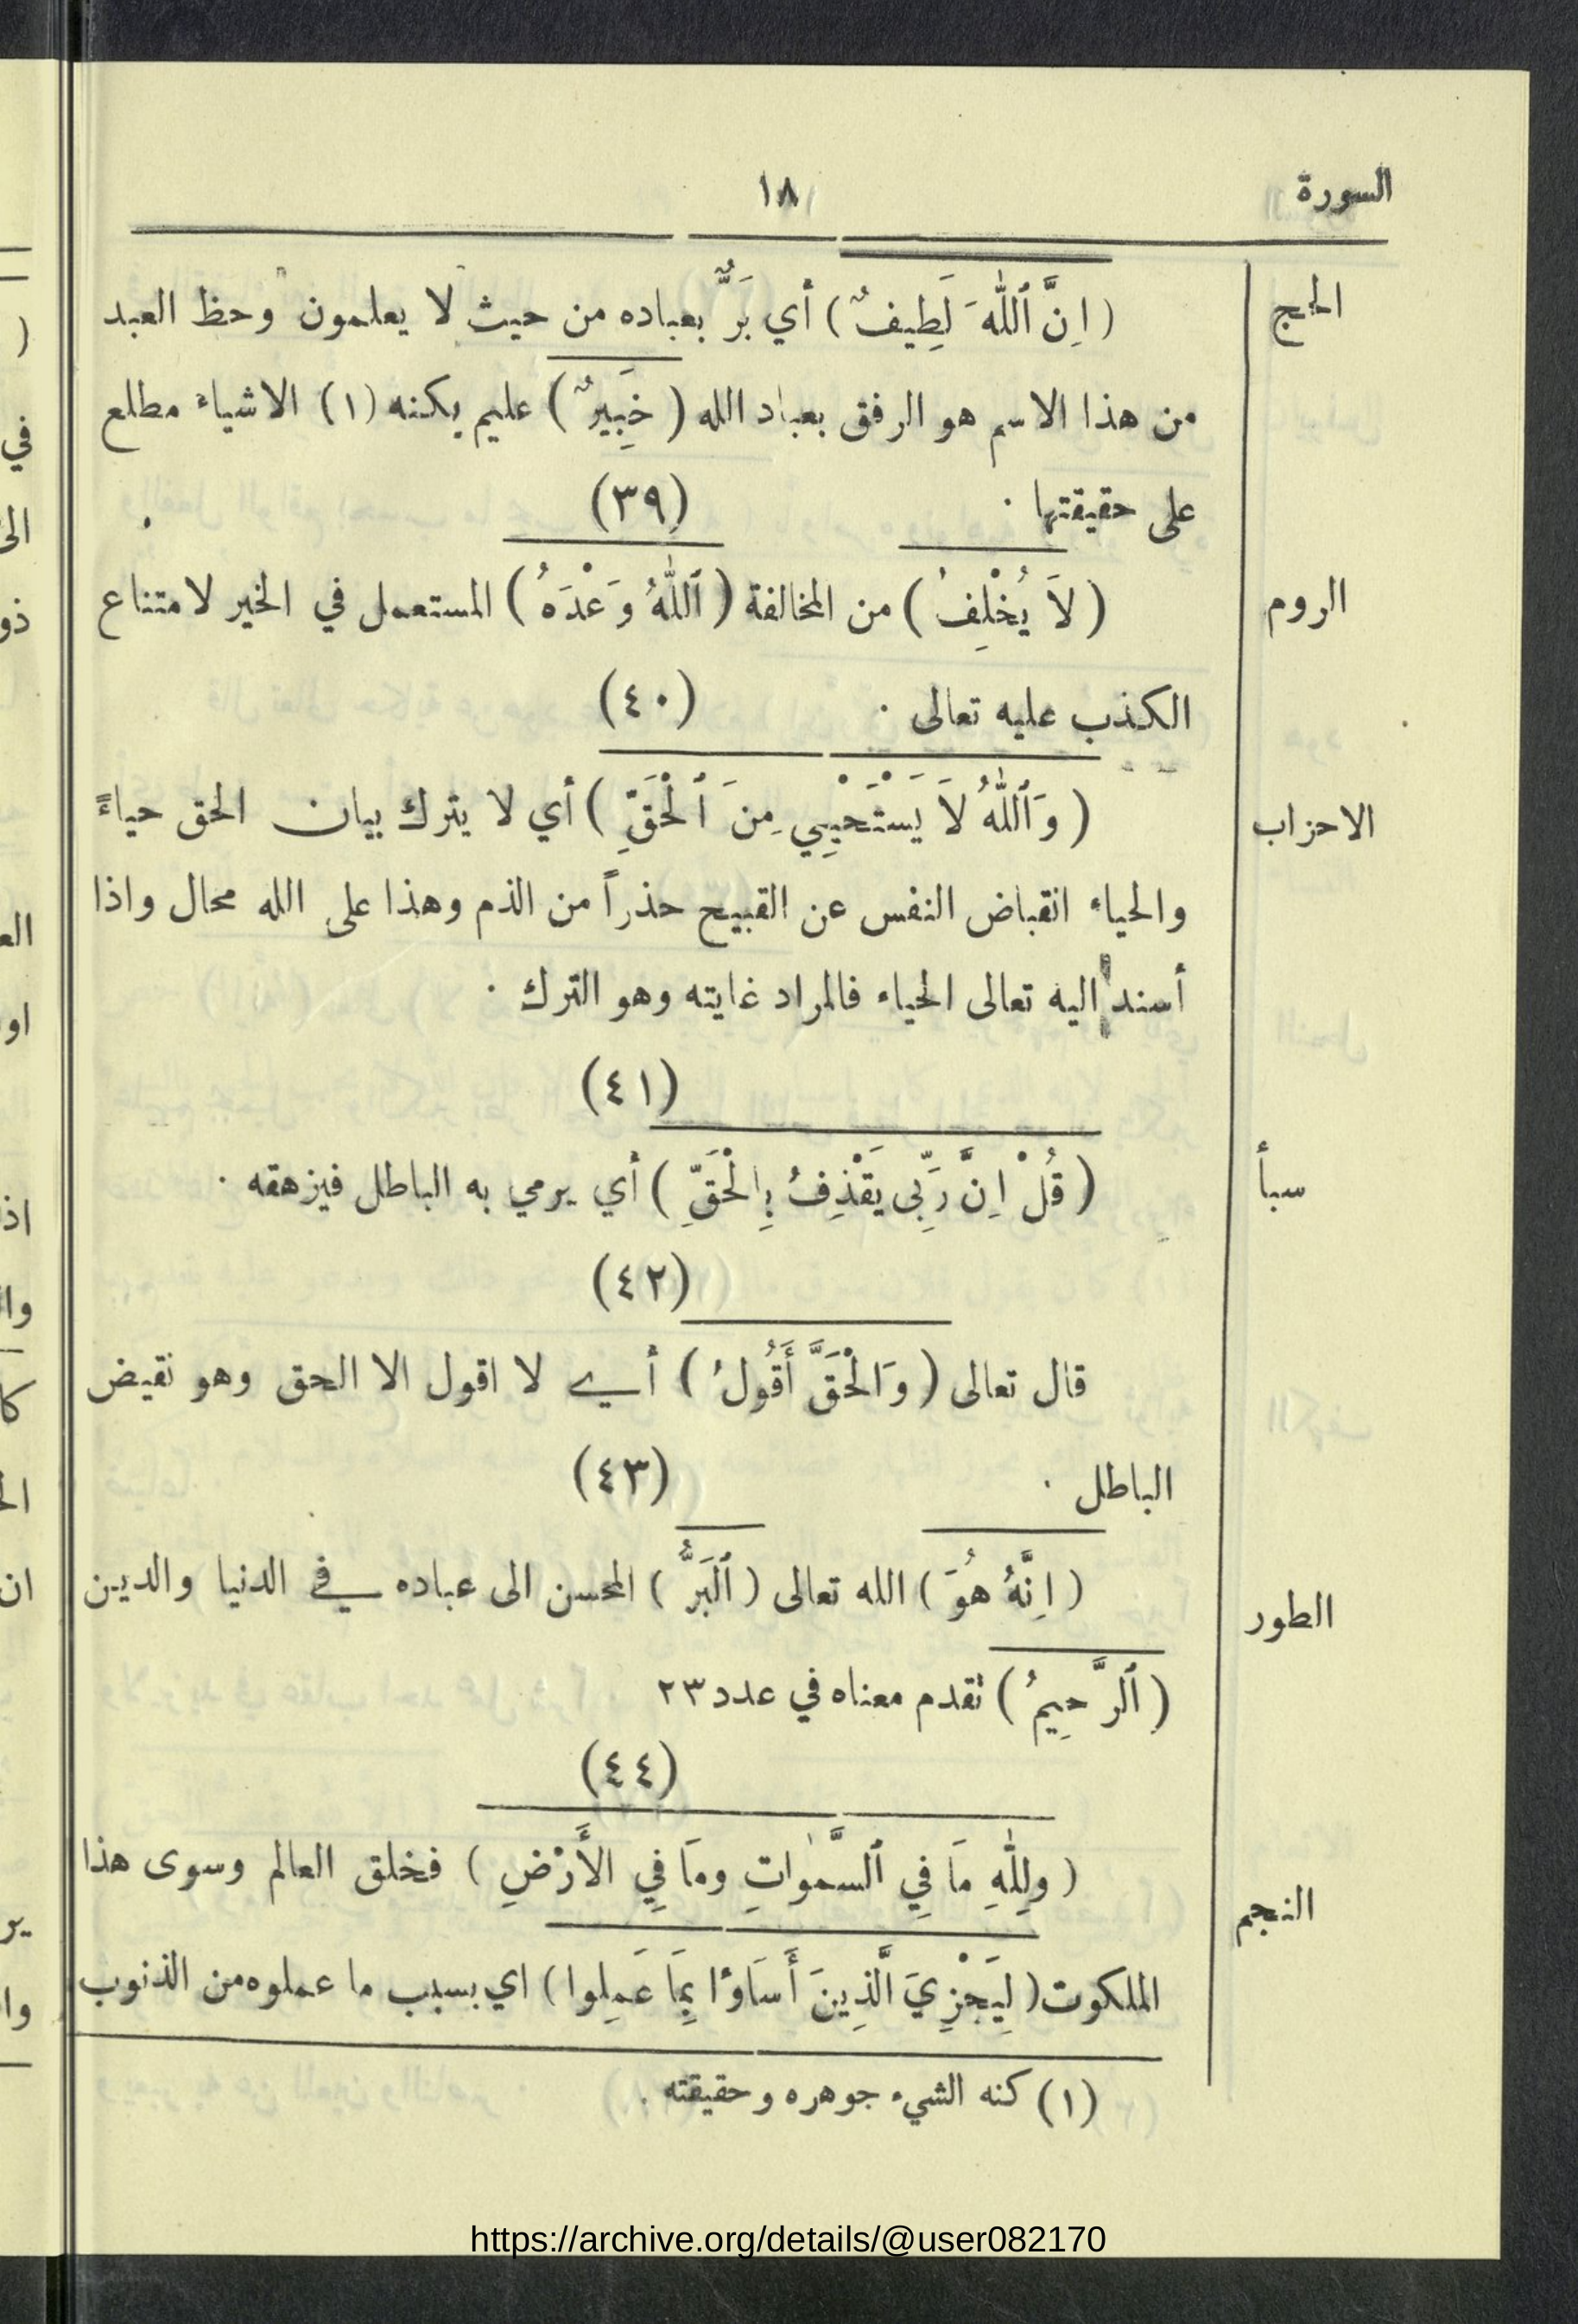 السورة
١٨
الحج
( اِنَّ ٱللّٰهَ لَطِيفٌ ) أي بَرٌّ بعباده من حيث لا يعلمون وحظ العبد
من هذا الاسم هو الرفق بعباد الله ( خَبِيرٌ ) عليم بكنه (١) الاشياء مطلع
على حقيقتها ·
(٣٩)
الروم
( لاَ يُخْلِفُ ) من المخالفة ( ٱللّٰهُ وَعْدَهُ ) المستعمل في الخير لامتناع
الكذب عليه تعالى ·
(٤٠)
الاحزاب
( وَٱللّٰهُ لاَ يَسْتَحْيِي مِنَ ٱلْحَقِّ ) أي لا يترك بيان الحق حياءً
والحياء انقباض النفس عن القبيح حذراً من الذم وهذا على الله محال واذا
أسند اليه تعالى الحياء فالمراد غايته وهو الترك ·
(٤١)
سبأ
( قُلْ اِنَّ رَبِّى يَقْذِفُ بِالْحَقِّ ) أي يرمي به الباطل فيزهقه ·
(٤٢)
قال تعالى ( وَالْحَقَّ أَقُولُ ) أي لا اقول الا الحق وهو نقيض
الباطل ·
(٤٣)
الطور
( اِنَّهُ هُوَ ) الله تعالى ( ٱلْبَرُّ ) المحسن الى عباده في الدنيا والدين
( ٱلرَّحِيمُ ) تقدم معناه في عدد ٢٣
(٤٤)
النجم
( وللّٰهِ مَا فِي ٱلسَّمٰوَاتِ ومَا فِي الأَرْضِ ) فخلق العالم وسوى هذا
الملكوت ( لِيَجْزِيَ الَّذِينَ أَسَاؤُا بِمَا عَمِلوا ) اي بسبب ما عملوه من الذنوب
(١) كنه الشيء جوهره وحقيقته .
https://archive.org/details/@user082170